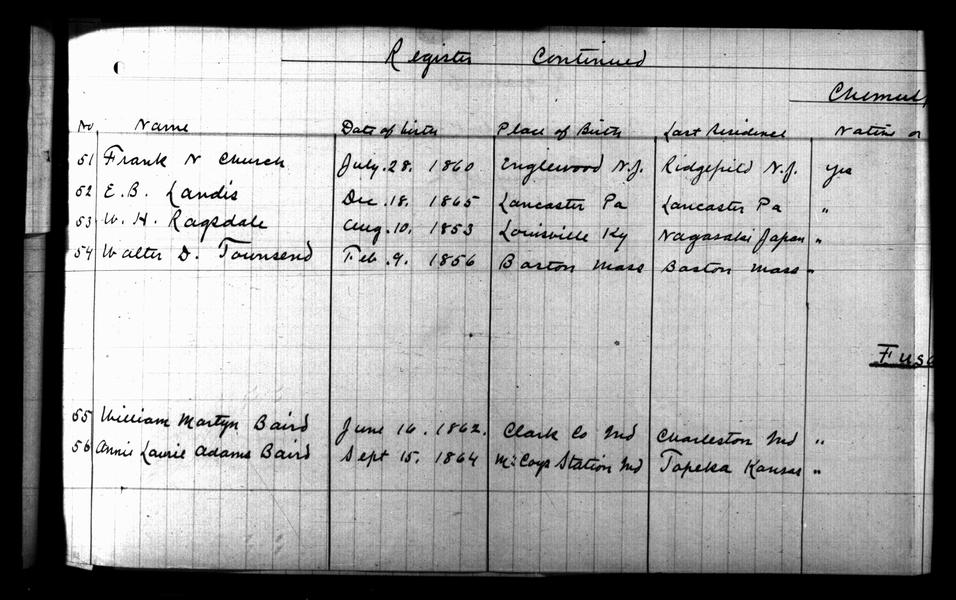 Register Continued
Chemul
No Name Date of birth Place of Birth Last Residence Native or
51 Frank N Church July. 28. 1860 Englewood N.J. Ridgefield N.J. yes
52 E.B. Landis Dec. 18. 1865 Lancaster Pa Lancaster Pa "
53 W. H. Ragsdale Aug. 10. 1853 Louisville Ky Nagasaki Japan "
54 Walter D. Townsend Feb. 9. 1856 Boston Mass Boston Mass "
Fusa
55 William Martyn Baird June 16. 1862. Clark Co Ind Charleston Ind "
56 Annie Laurie Adams Baird Sept 15. 1864 McCoys Station Ind Topeka Kansas "